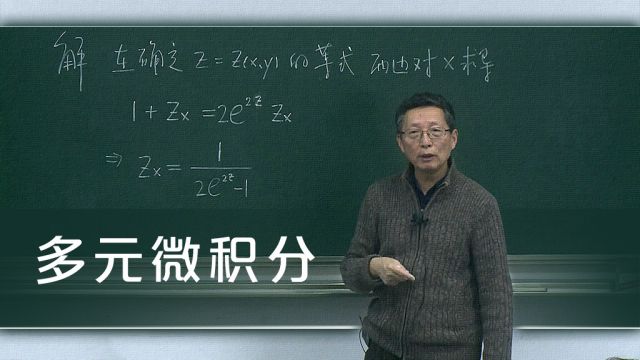 解 在确定 z = z(x,y) 的等式 两边对 x 求导
1 + Zx = 2e^{2z} Zx
⇒ Zx = 1 / (2e^{2z} - 1)
多元微积分